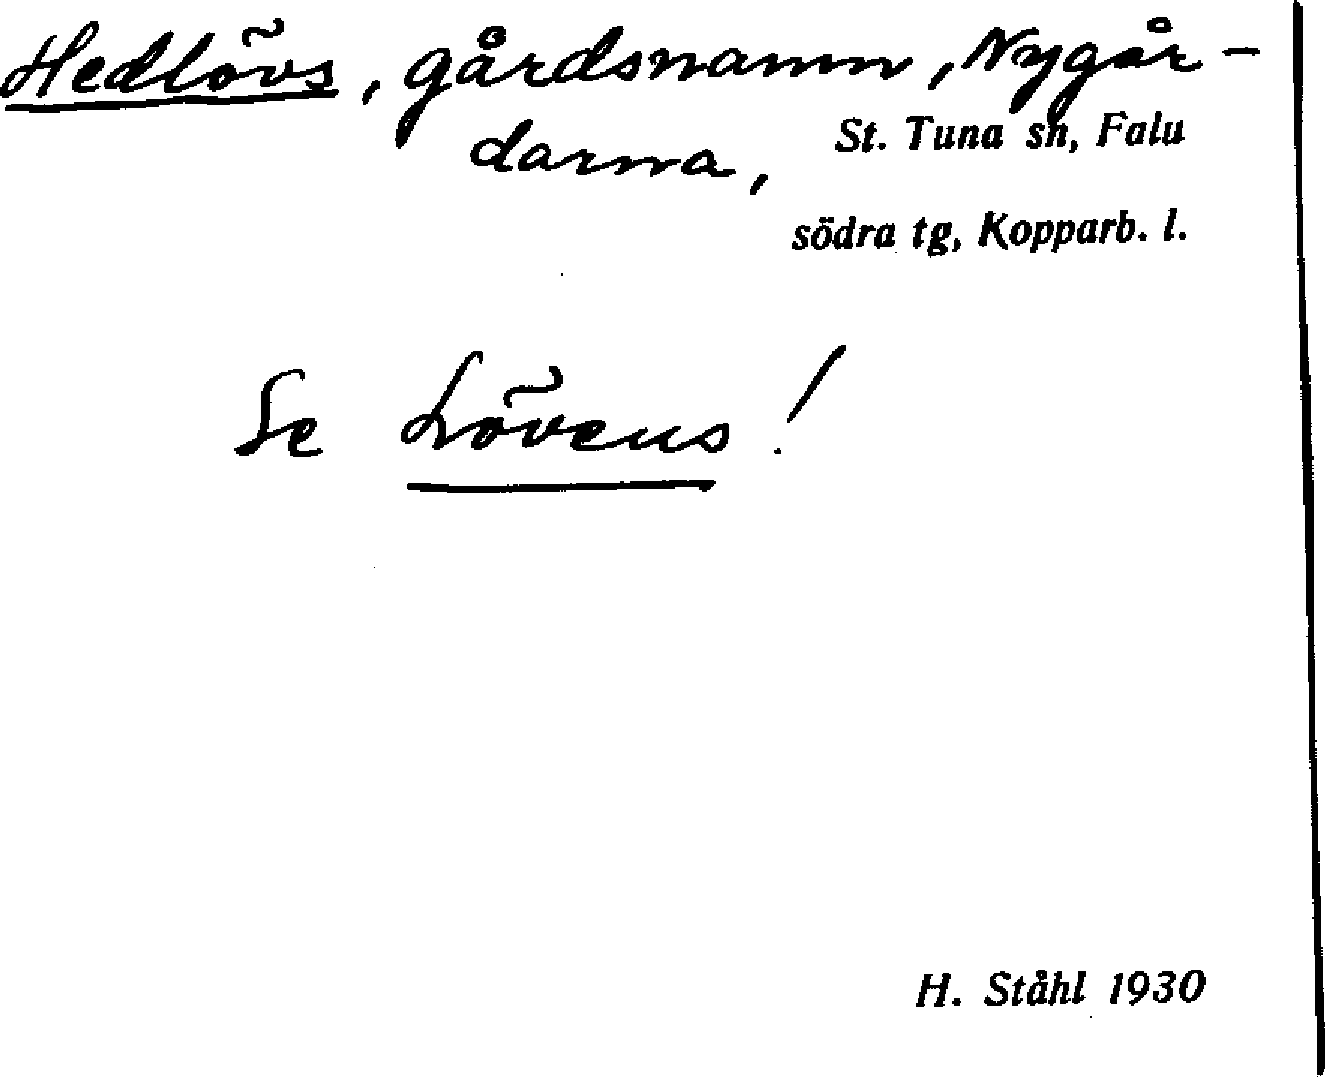 Hedlövs, gårdsnamn, Nygår-
darna, St. Tuna sn, Falu
södra tg, Kopparb. l.
Se Lövens!
H. Ståhl 1930